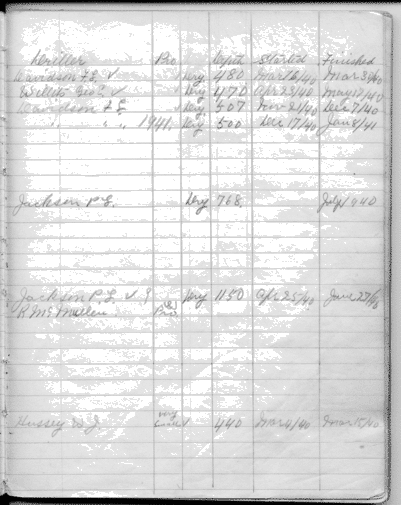 Driller Pro Depth Started Finished
Davidson F.E. ✓ Dry 480 Mar 16/40 Mar 30/40
Willett Geo E ✓ Dry 470 Apr 23/40 May 17/40
Davidson F E Dry 507 Nov 21/40 Dec 7/40
" " " 1941. Dry 500 Dec 17/40 Jan 8/41
Jackson P.E. Dry 768. July 1940
Jackson P.E. ✓ & Dry 1150 Apr 25/40 June 27/40
R. McMullen. Pro
Hussey W.J. 440 Mar 4/40 Mar 15/40